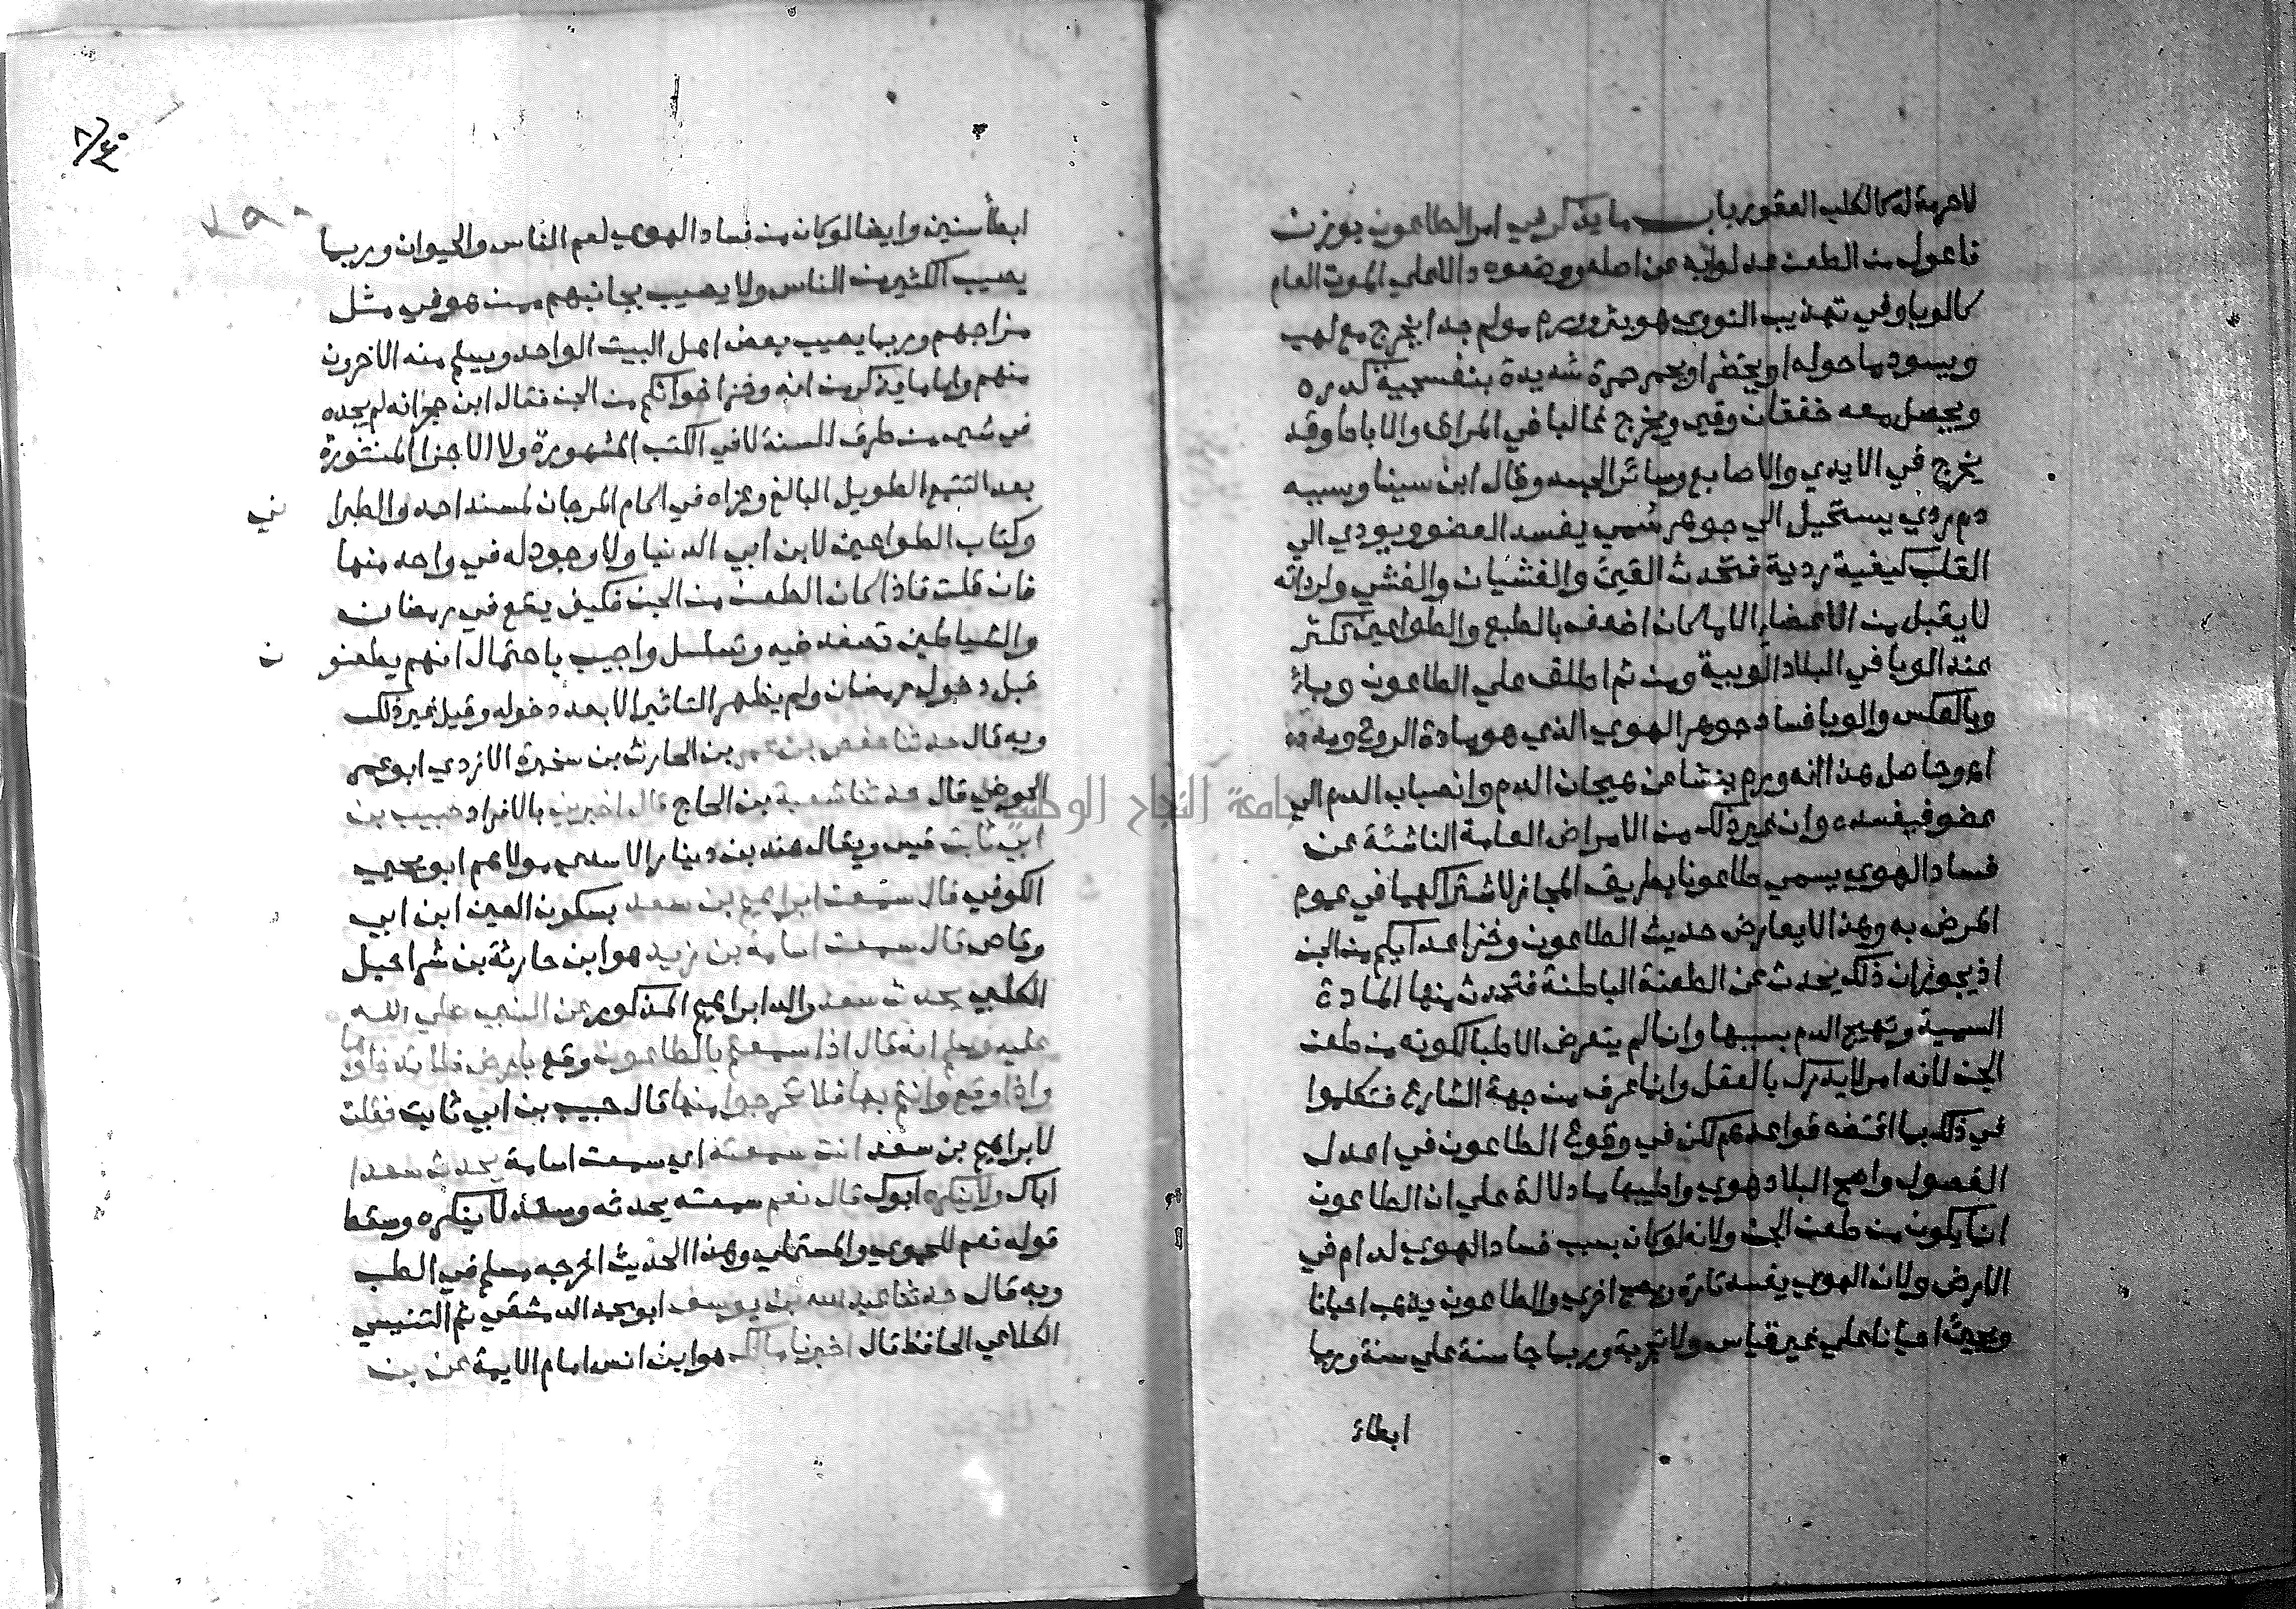 لا حرمة له كالكلب العقور باب ما يذكر في امر الطاعون بوزن
فاعول من الطعن عدلوا به عن اصله ووضعوه دالا علي الموت العام
كالوبا وفي تهذيب النووي هو بثر وورم مولم جدا يخرج مع لهب
ويسود ما حوله او يخضر او يحمر حمرة شديدة بنفسجية كدرة
ويحصل معه خفقان وقي ويخرج غالبا في المراق والاباط وقد
يخرج في الايدي والاصابع وسائر الجسد وقال ابن سينا وسببه
دم ردي يستحيل الي جوهر سمي يفسد العضو ويودي الي
القلب كيفية ردية فتحدث القئ والغشيان والغشي ولرداته
لا يقبل من الاعضاء الا ما كان اضعف بالطبع والطواعين تكثر
عند الوبا في البلاد الوبية ومن ثم اطلق علي الطاعون وباء
وبالعكس والوبا فساد جوهر الهوي الذي هو مادة الروح ومدده
اهـ وحاصل هذا انه ورم ينشا عن هيجان الدم وانصباب الدم الي
عضو فيفسده وان غير ذلك من الامراض العامة الناشئة عن
فساد الهوي يسمي طاعونا بطريق المجاز لاشتراكهما في عموم
المرض به وهذا لا يعارض حديث الطاعون وخز اعدائكم من الجن
اذ يجوز ان ذلك يحدث عن الطعنة الباطنة فتحدث منها المادة
السمية وتهيج الدم بسببها وانما لم يتعرض الاطبا لكونه من طعن
الجن لانه امر لا يدرك بالعقل وانما عرف من جهة الشارع فتكلموا
في ذلك بما اقتضه قواعدهم لكن في وقوع الطاعون في اعدل
الفصول واصح البلاد هوي واطيبها ما دلالة علي ان الطاعون
انما يكون من طعن الجن ولانه لو كان بسبب فساد الهوي لدام في
الارض ولان الهوي يفسد تارة ويصح اخري والطاعون يذهب احيانا
ويجئ احيانا علي غير قياس ولا تجربة وربما جا سنة علي سنة وربما
ابطاء
ابطأ سنين وايضا لو كان من فساد الهوي لعم الناس والحيوان وربما
يصيب الكثير من الناس ولا يصيب بجانبهم ممن هو في مثل
مزاجهم وربما يصيب بعض اهل البيت الواحد ويسلم منه الاخرون
منهم واما ما يذكر من انه وخز اخوانكم من الجن فقال ابن حجر انه لم يجده
في شي من طرق السنة لا في الكتب المشهورة ولا الاجزا المنثورة
بعد التتبع الطويل البالغ وعزاه في اكام المرجان لمسند احمد والطبرا ني
وكتاب الطواعين لابن ابي الدنيا ولا وجود له في واحد منها
فان قلت فاذا كان الطعن من الجن فكيف يقع في رمضان
والشياطين تصفد فيه وتسلسل واجيب باحتمال انهم يطعنو ن
قبل دخول رمضان ولم يظهر التاثير الا بعد دخوله وقيل غير ذلك
وبه قال حدثنا حفص بن عمر بن الحارث بن سخبرة الازدي ابو عمر
الحوضي قال حدثنا شعبة بن الحاج قال اخبرني بالافراد حبيب بن
ابي ثابت قيس ويقال هند بن دينار الاسدي مولاهم ابو يحيي
الكوفي قال سمعت ابراهيم بن سعد بسكون العين ابن ابي
وقاص قال سمعت اسامة بن زيد هو ابن حارثة بن شراحيل
الكلبي يحدث سعد والد ابراهيم المذكور عن النبي صلي الله
عليه وسلم انه قال اذا سمعتم بالطاعون وقع بارض فلا تدخلو ها
واذا وقع وانتم بها فلا تخرجوا منها قال حبيب بن ابي ثابت فقلت
لابراهيم بن سعد انت سمعته اي سمعت اسامة يحدث سعدا
اباك ولا ينكره ابوك قال نعم سمعته يحدثه وسعد لا ينكره وسقط
قوله نعم للحموي والمستملي وهذا الحديث اخرجه مسلم في الطب
وبه قال حدثنا عبد الله بن يوسف ابو محمد الدمشقي ثم التنيسي
الكلاعي الحافظ قال اخبرنا مالك هو ابن انس امام الايمة عن بن
جامعة النجاح الوطنية